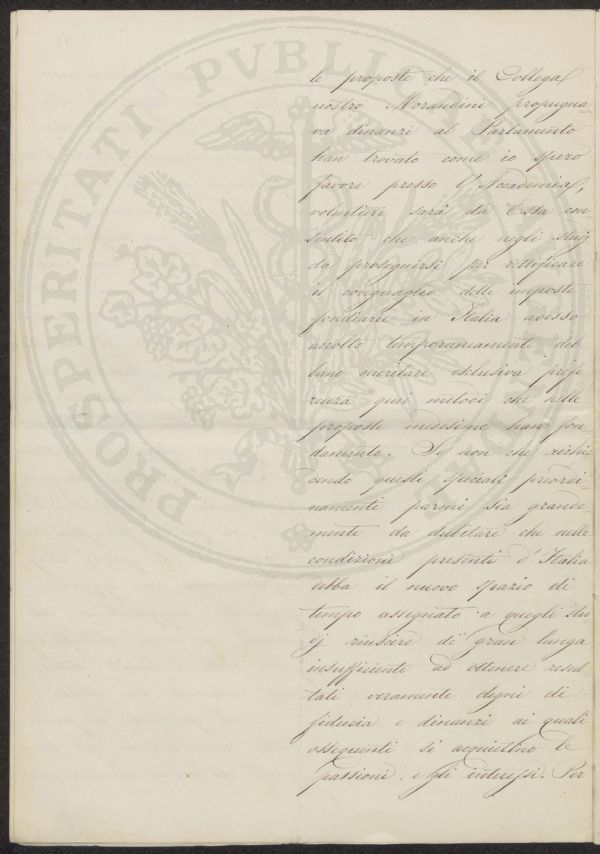 PROSPERITATI PVBLICAE
le proposte che il Collega
nostro Morandini propugna=
va dinanzi al Parlamento
han trovato come io spero
favore presso l'Accademia,
volentieri sarà da Essa con=
sentito che anche negli studj
da proseguirsi per rettificare
il conguaglio delle imposte
fondiarie in Italia adesso
accolto temporaneamente deb
bano meritare esclusiva prefe
renza quei metodi che nelle
proposte medesime han fon
damento. Se non che richie
dendo questi speciali preordi=
namenti parmi sia grande=
mente da dubitare che nelle
condizioni presenti d'Italia
abbia il nuovo spazio di
tempo assegnato a quegli stu
dj riuscire di gran lunga
insufficiente ad ottenere resul
tati veramente degni di
fiducia e dinanzi ai quali
ossequenti si acquietino le
passioni e gli interessi. Per